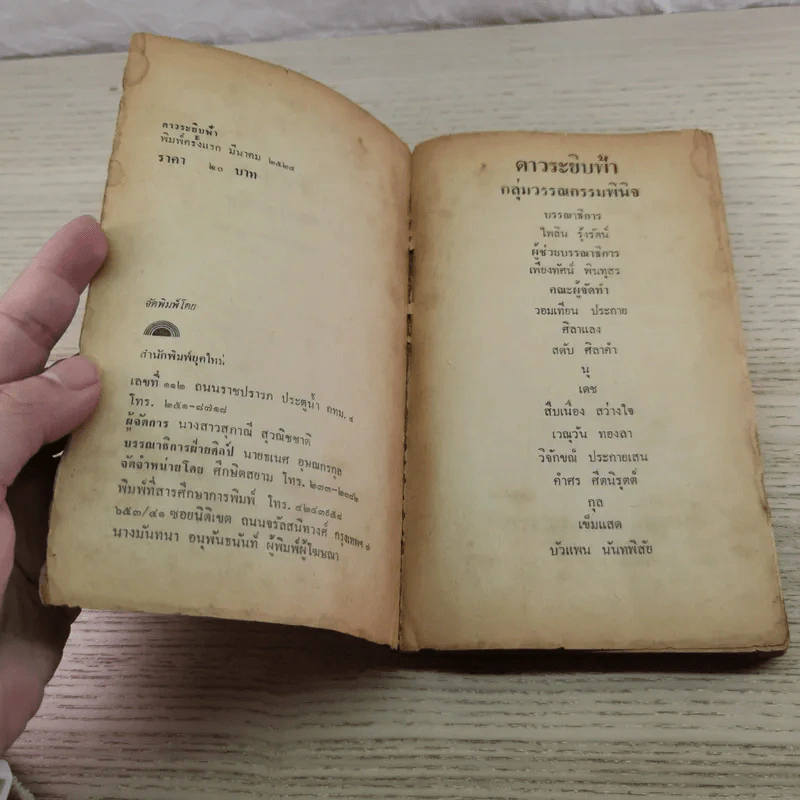 ดาวระยิบฟ้า
พิมพ์ครั้งแรก มีนาคม ๒๕๒๔
ราคา ๒๐ บาท
จัดพิมพ์โดย
สำนักพิมพ์ยุคใหม่
เลขที่ ๑๑๒ ถนนราชปรารภ ประตูน้ำ กทม. ๔
โทร. ๒๕๑-๘๗๑๘
ผู้จัดการ นางสาวสุภาณี สุวณิชชาติ
บรรณาธิการฝ่ายศิลป์ นายธเนศ อุษณกรกุล
จัดจำหน่ายโดย ศึกษิตสยาม โทร. ๒๓๓-๒๓๘๒
พิมพ์ที่สารศึกษาการพิมพ์ โทร. ๔๒๔๓๙๕๘
๖๕๓/๔๑ ซอยนิติเขต ถนนจรัลสนิทวงศ์ กรุงเทพฯ ๘
นางมันทนา อนุพันธนันท์ ผู้พิมพ์ผู้โฆษณา
ดาวระยิบฟ้า
กลุ่มวรรณกรรมพินิจ
บรรณาธิการ
ไพลิน รุ้งรัตน์
ผู้ช่วยบรรณาธิการ
เพียงทัศน์ พินทุสร
คณะผู้จัดทำ
วอมเทียน ประกาย
ศิลาแลง
สดับ ศิลาคำ
นุ
เดช
สืบเนื่อง สว่างใจ
เวณุวัน ทองลา
วิจักขณ์ ประกายเสน
คำศร ศีตนิรุตต์
กุล
เข็มแสด
บัวแพน นันทพิสัย